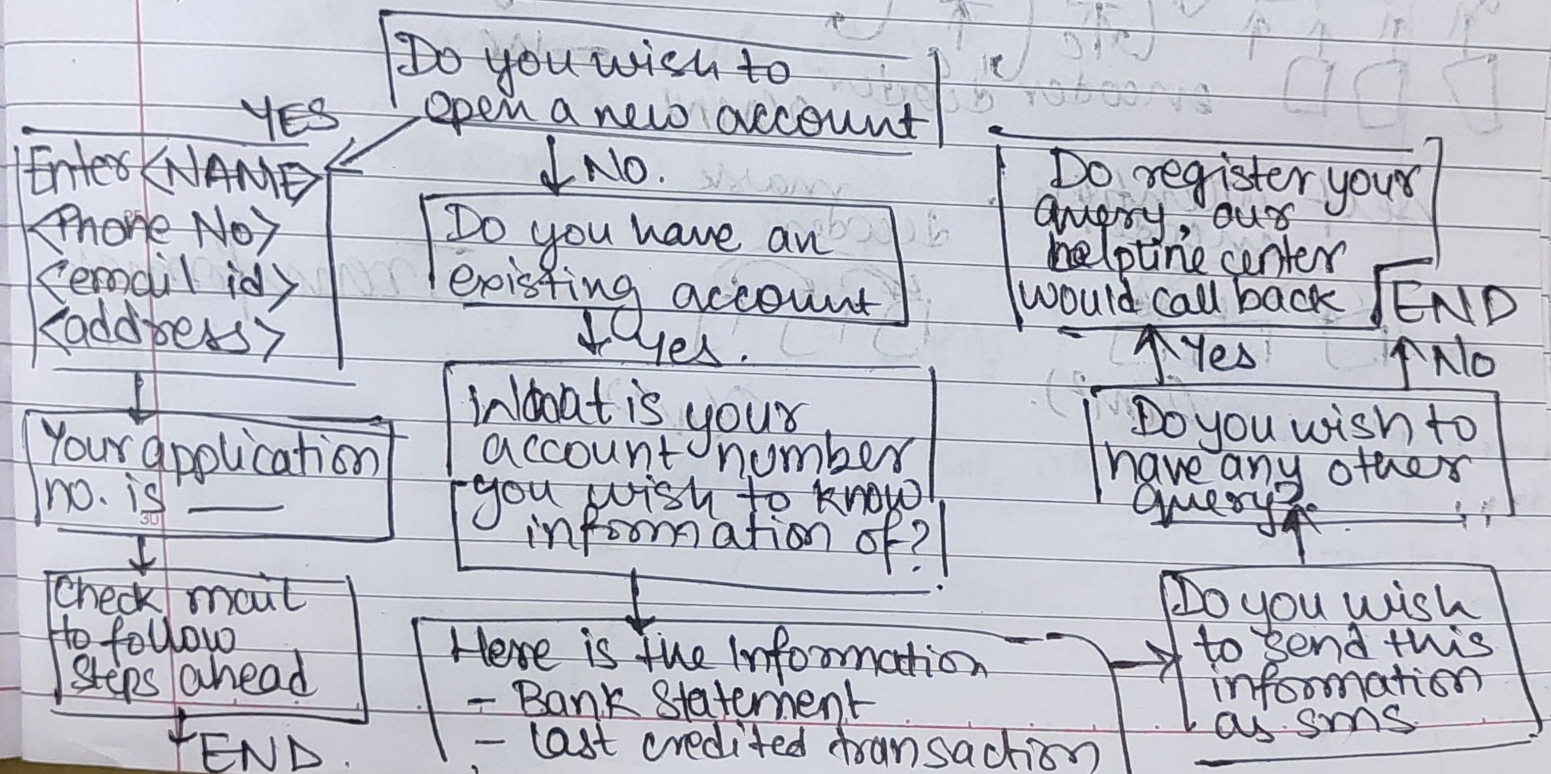 Do you wish to
open a new account
YES
Enter <NAME>
<Phone No>
<email id>
<address>
Your application
no. is ___
30
Check mail
to follow
steps ahead
END.
No.
Do you have an
existing account
Yes.
What is your
account number
you wish to know
information of?
Here is the Information
- Bank Statement
- last credited transaction
Do you wish
to send this
information
as sms
Do you wish to
have any other
query?
Yes
No
Do register your
query, our
helpline center
would call back
END